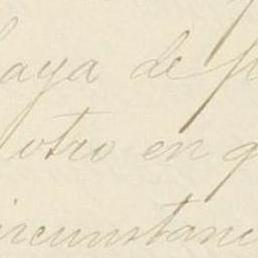 haya de
otro en
circunstanci